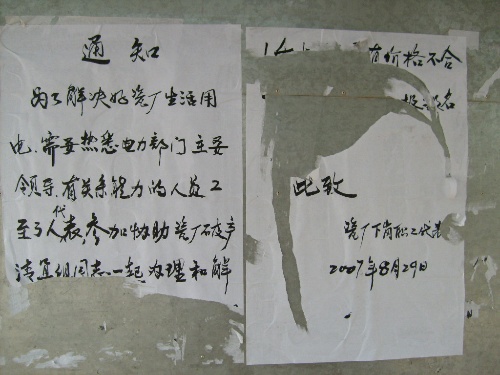 通知
为了解决好瓷厂生活用
电、需要热悉电力部门主要
领导、有关系能力的人员2
至3人代表,参加协助瓷厂破产
清组同志一起办理和解
有价格不合
名
此致
瓷厂下岗职工代表
2007年8月29日